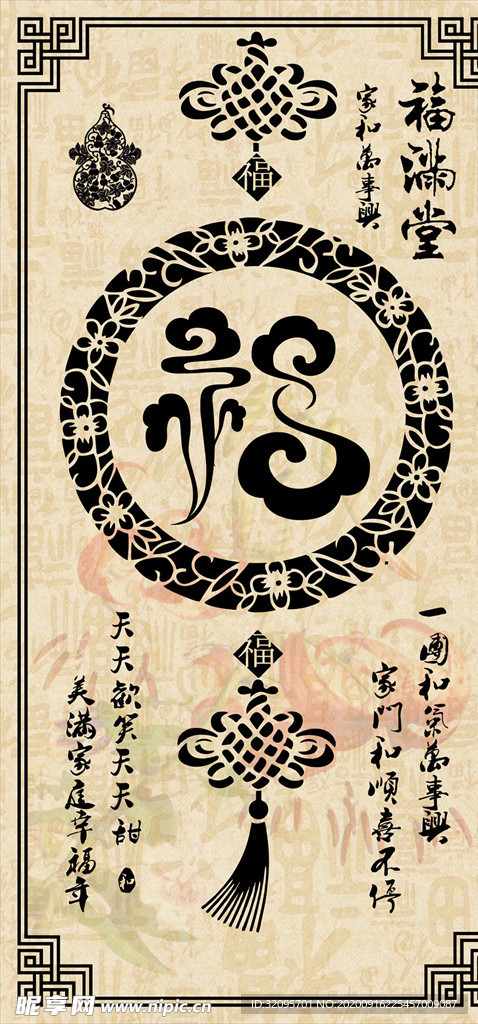 福滿堂
家和萬事興
福
福
福
一團和氣萬事興
家門和順喜不停
天天歡笑天天甜
美滿家庭幸福年
和
昵享网 www.nipic.cn
ID:32095701 NO:20200916225457009087